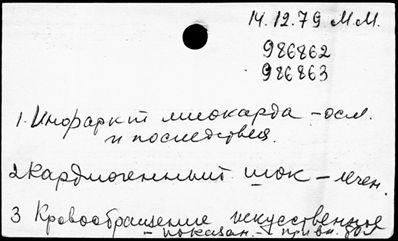 14.12.79 М.М.
986862
986863
1. Инфаркт миокарда – осл.
и последствия.
2. Кардиогенный шок – лечен.
3 Кровообращение искусственное
– показан. – прим.